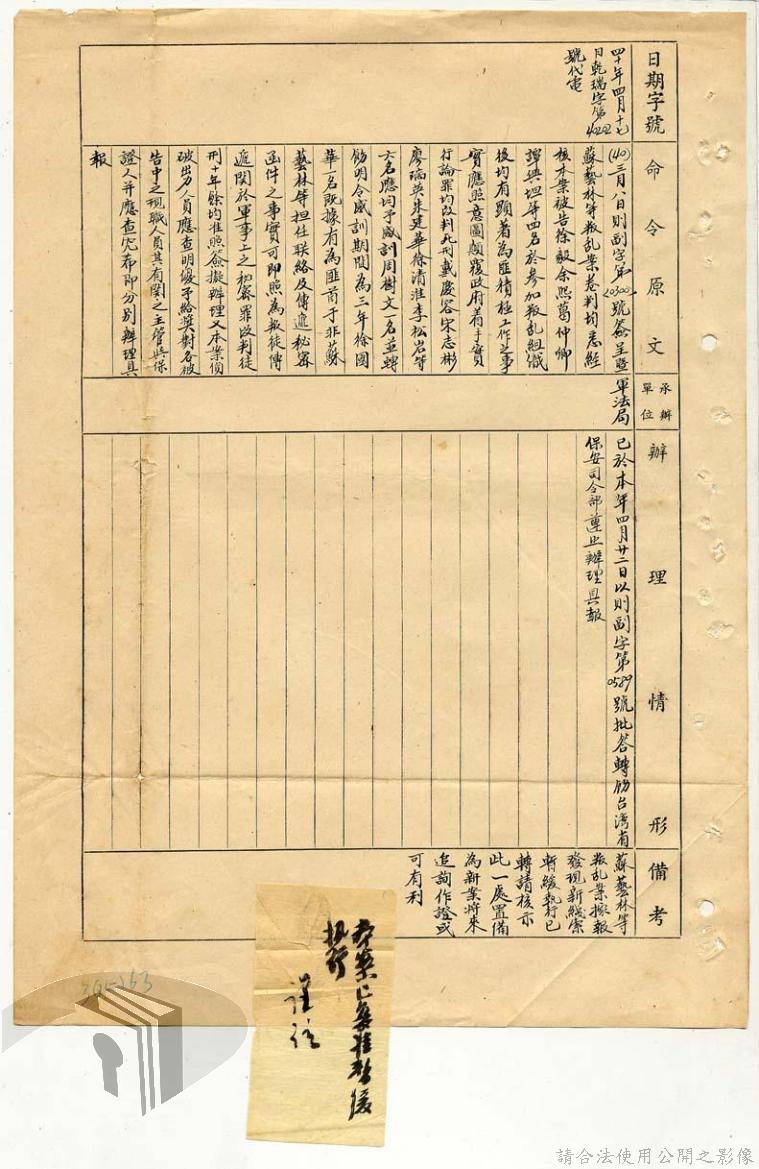 日期字號
四十年四月十七
日乾瑞字第4022
號代電
命令原文
(40)三月八日則副字第20300號簽呈暨
蘇藝林等叛乱案卷判均悉經
核本案被告徐毅余熙葛仲卿
譚興坦等四名於参加叛乱組織
後均有顕著為匪積極工作之事
實應照意圖顛覆政府着手實
行論罪均改判死刑戴慶容宋志彬
廖瑞英朱建華徐清淮李松岩等
六名應均予感訓周樹文一名並轉
飭明令感訓期間為三年徐國
華一名既據有為匪首于非蘇
藝林等担任联絡及傳遞秘密
函件之事實可即照為叛徒傳
遞関於軍事上之秘密罪改判徒
刑十年餘均准照簽擬辦理又本案偵
破出力人員應查明優予給奬對各被
告中之現職人員其有関之主管與保
證人并應查究希即分别辦理具
報
承辦單位
軍法局
辦理情形
已於本年四月廿二日以則副字第0589號批答轉飭台湾省
保安司令部遵照辦理具報
備考
蘇藝林等
叛乱案據報
發現新綫索
暫緩執行已
轉請核示
此一處置備
為新案將來
追詢作證或
可有利
本案已奉准暫緩
執行
謹註
395-163
請合法使用公開之影像